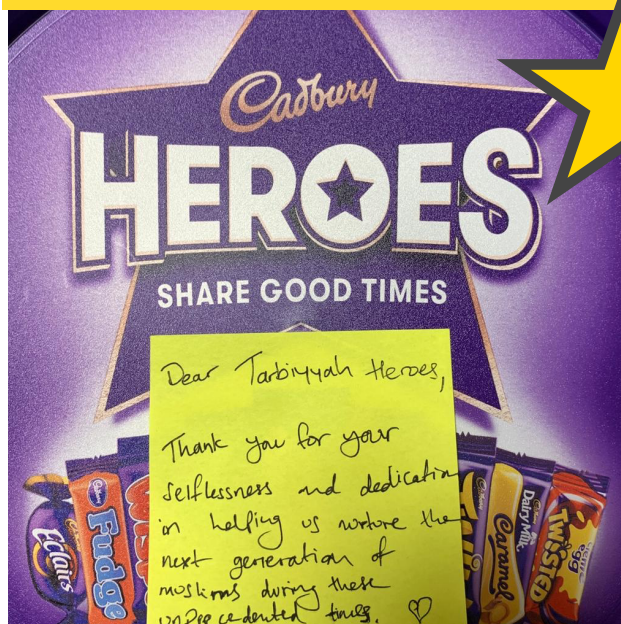 Cadbury
HEROES
SHARE GOOD TIMES
Dear Tarbiyyah Heroes,
Thank you for your
selflessness and dedication
in helping us nurture the
next generation of
muslims during these
unprecedented times. ♡
Eclairs
Cadbury
Fudge
Cadbury
Dairy Milk
Caramel
creme
egg
TWISTED